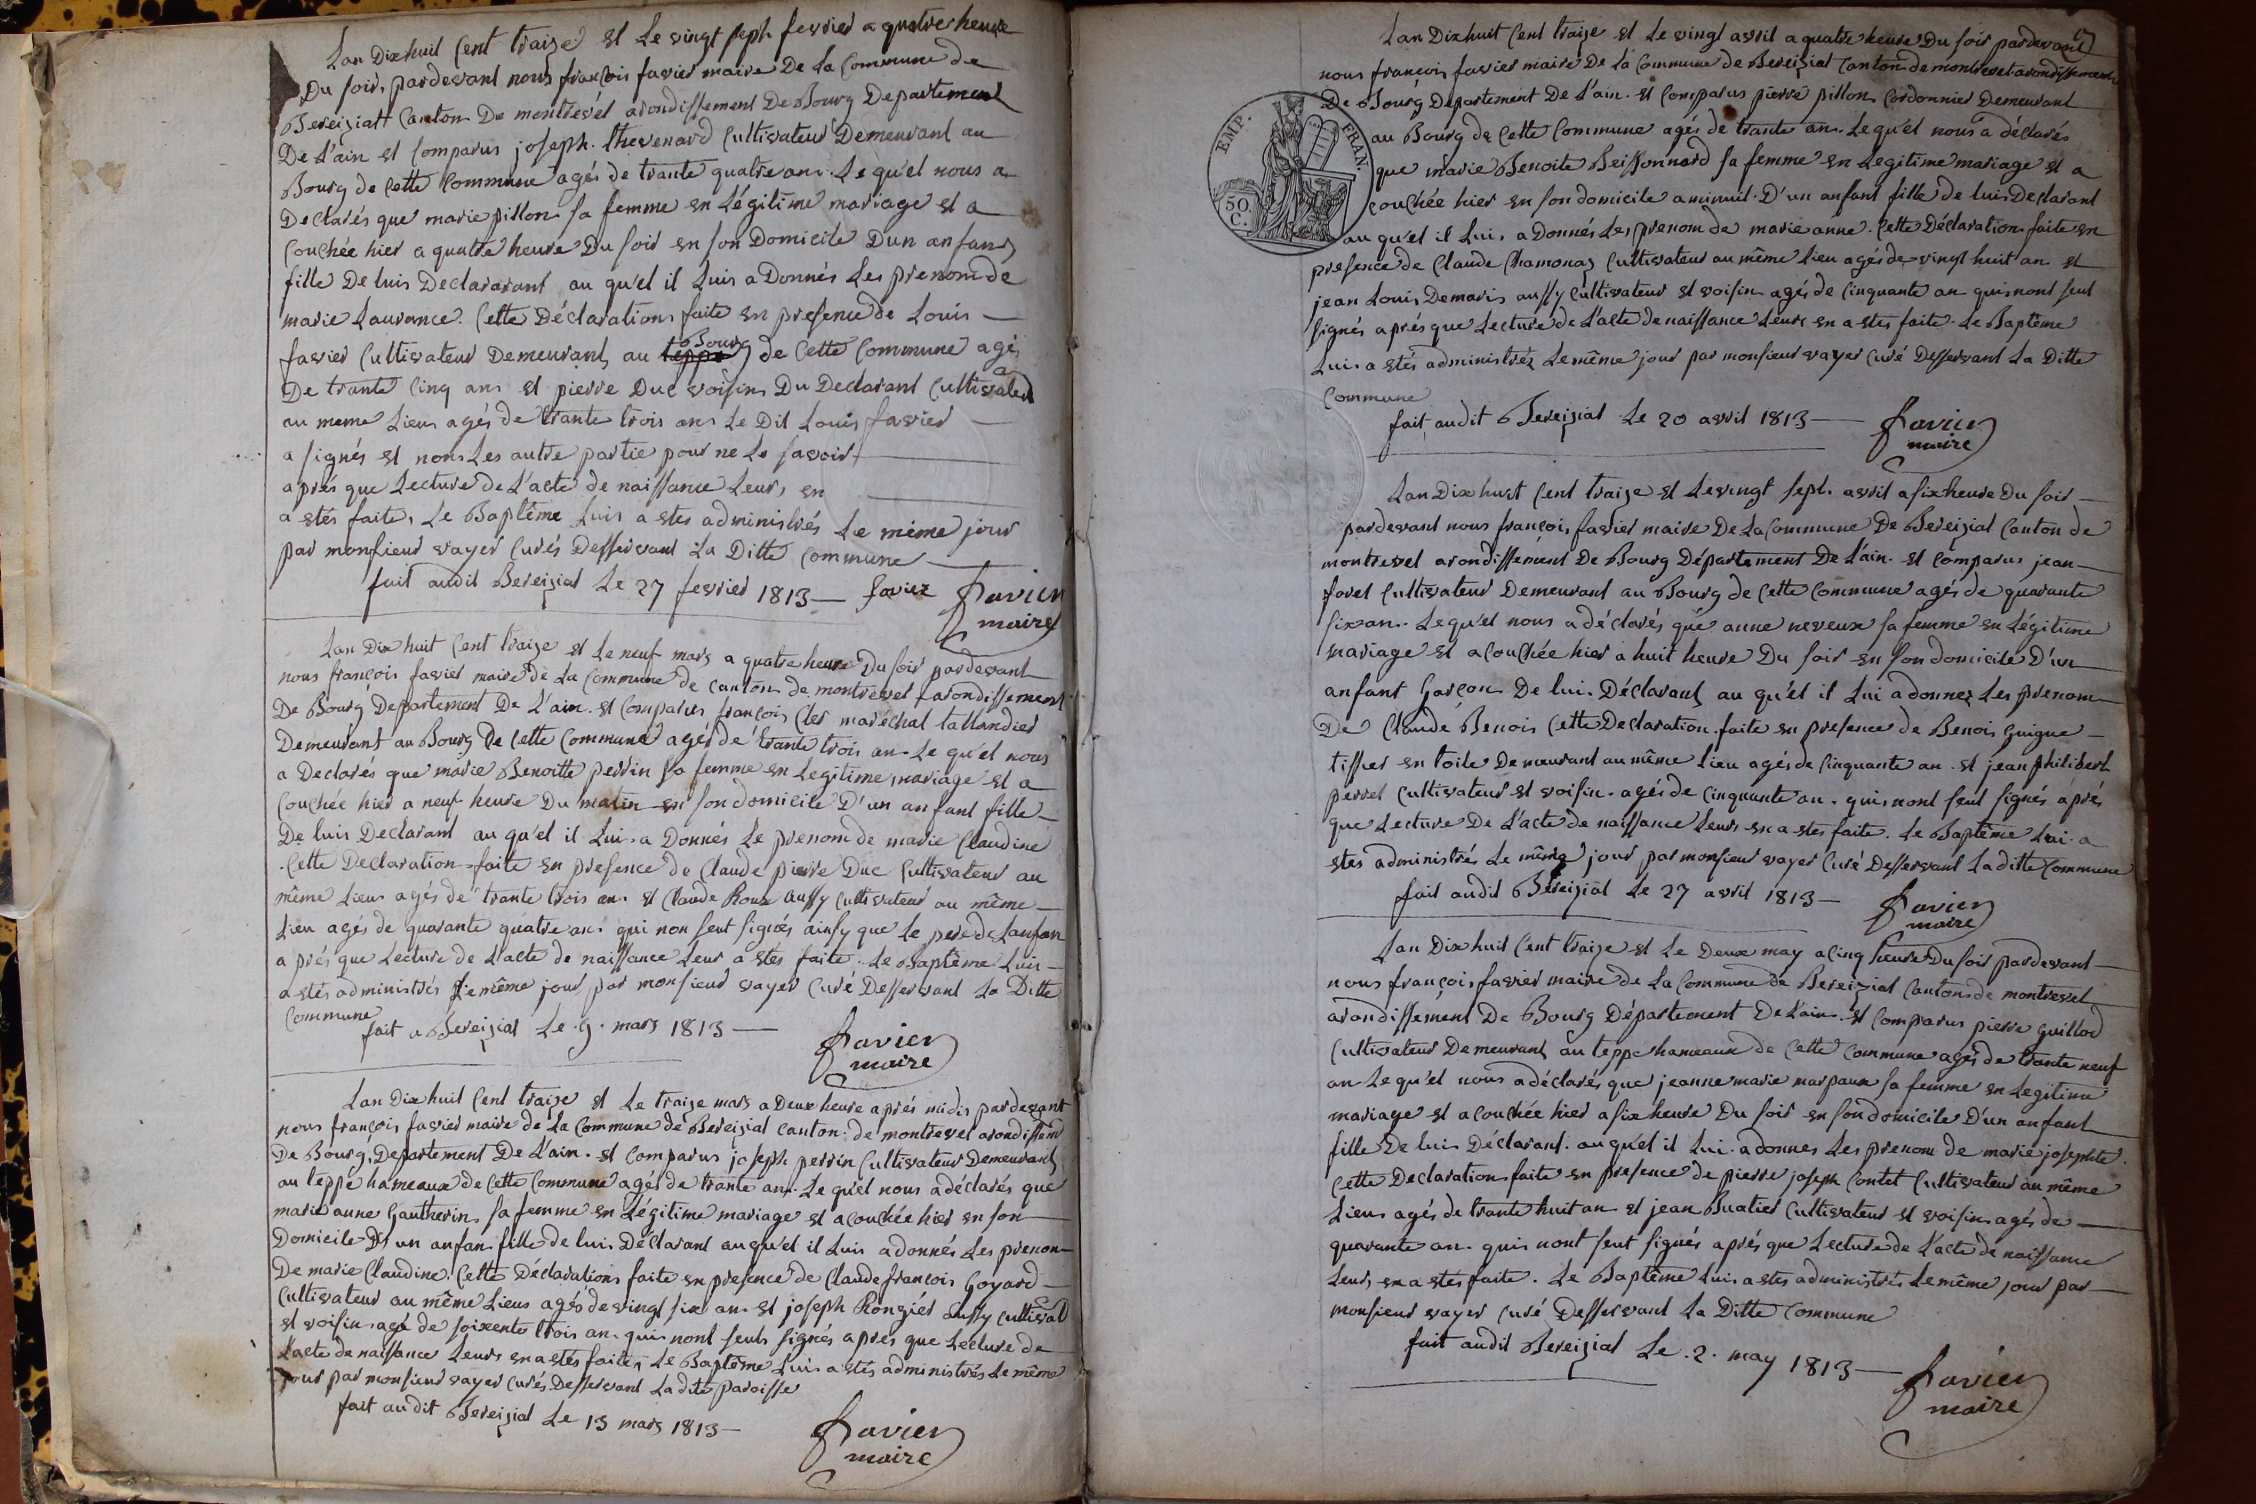 Lan Dixhuit Cent traize et Le vingt seph fevrier a quatre heure
Du soir, pardevant nous françois favier maire De La Commune de
Bereiziatt Canton De montrevel arondissement De Bourg Departement
De L'ain et Comparus joseph thevenard Cultivateur Demeurant au
Bourg de Cette Commune agés de trante quatre an. Le qu'el nous a
Declarés que marie pillon sa femme en Légitime mariage et a
Couchée hier a quatre heure Du soir en son Domicile Dun anfans
fille De luis Declararant au qu'el il Luis a Donnés Les prenom de
marie Laurance. Cette Déclaration faite en presence de Louis
favier Cultivateur Demeurant au Bourg de Cette Commune agés
De trante Cinq ans et pierre Duc voisin Du Declarant Cultivateur
au meme Lieu agés de trante trois an. Le Dit Louis favier
a signés et non Les autre partie pour ne Le savoir
après que Lecture de L'acte de naissance Leurs en
a etés faite, Le Baptême Luis a etes administrés Le même jour
par monsieur vayer Curés Desservant La Ditte Commune
fait audit Bereiziat Le 27 fevrier 1813 favier favier
maire
Lan Dix huit Cent traize et Le neuf mars a quatre heure Du soir pardevant
nous françois favier maire de La Commune de Canton de montrevel arondissement
De Bourg Departement De L'ain. et Comparus françois Cler maréchal tallandier
Demeurant au Bourg De Cette Commune agés de trante trois an. Le qu'el nous
a Declarés que marie Benoitte perrin sa femme en Legitime mariage et a
Couchée hier a neuf heure Du matin en son domicile D'un anfant fille
De luis Declarant au qu'el il Lui a Donnés Le prenom de marie Claudine
. Cette Declaration faite en presence de Claude pierre Duc Cultivateur au
même Lieu agés de trante trois an. et Claude Roux aussy Cultivateur au même
Lieu agés de quarante quatre an. qui non seut signés ainsy que Le pere de Lanfan
a prés que Lecture de L'acte de naissance Leur a etes faite. Le Baptême Luis
a etés administrés Le même jour, par monsieur vayer Curé Desservant La Ditte
Commune
fait a Bereiziat Le .9. mars 1813
favier
maire
Lan Dix huit Cent traize et Le traize mars a Deux heure aprés midis pardevant
nous françois favier maire de La Commune de Bereiziat Canton de montrevel arondissem
De Bourg, Departement De L'ain. et Comparus joseph perrin Cultivateur Demeurant
au teppe hameaux de Cette Commune agés de trante an. Le qu'el nous a déclarés que
marie anne Gautherin sa femme en Légitime mariage et a couchée hier en son
Domicile D'un anfan fille de luis Déclarant au qu'el il Luis a donnés Les prenom
De marie Claudine. Cette Déclaration faite en presence de Claude françois Goyard
Cultivateur au même Lieu agés de vingt six an. et joseph Rongier aussy Cultivat
et voisin agé de soixente trois an. quis nont seuts signés apres que Lecture de
L'acte de naissance Leurs en a etés faite, Le Baptême Luis a etés administrés Le même
jour par monsieur vayer Curés Desservant La dite paroisse
fait au dit Bereiziat Le 13 mars 1813
favier
maire
Lan Dixhuit Cent traize et Le vingt avril a quatre heure Du soir pardevant
nous françois favier maire De La Commune de Bereiziat Canton de montrevel arondissement
De Bourg Departement De L'ain. et Comparus pierre pillon Cordonnier Demeurant
au Bourg de Cette Commune agés de trante an. Le qu'el nous a déclarés
que marie Benoite Beissonnard sa femme en Legitime mariage et a
couchée hier en son domicile a minuit. D'un anfant fille de luis Declarant
au qu'el il Luis a Donnés Les prenom de marie anne. Cette Déclaration faite en
presence de Claude Chamonaz Cultivateur au même Lieu agés de vingt huit an et
jean Louis Demaris aussy Cultivateur et voisin agés de Cinquante an quis nont seut
signés aprés que Lecture de L'acte de naissance Leurs en a etes faite. Le Baptême
Luis a etés administréz Le même jour par monsieur vayer Curé Desservant La Ditte
Commune
fait audit Bereiziat Le 20 avril 1813
favier
maire
EMP. FRAN.
50 C.
Lan Dix huit Cent traize et Le vingt sept. avril a six heure Du soir
pardevant nous françois favier maire De La Commune De Bereiziat Canton de
montrevel arondissement De Bourg Département De L'ain. et Comparus jean
favel Cultivateur Demeurant au Bourg de Cette Commune agés de quarante
six an. Le qu'el nous a déclarés qué anne neveux sa femme en Légitime
mariage et a couchée hier a huit heure Du soir en son domicile D'un
anfant Garçon De lui. Déclarant au qu'el il Lui a donnez Les prenom
De Claude Benois Cette Declaration faite en presence de Benois Guigue
tissier en toile Demeurant au même Lieu agés de Cinquante an. et jean philibert
perret Cultivateur et voisin. agés de Cinquante an. quis nont seut signés aprés
que Lecture De L'acte de naissance Leurs en a etes faite. Le Baptême Lui a
etes administrés Le même jour par monsieur vayer Curé Desservant La ditte Commune
fait audit Béreiziat Le 27 avril 1813
favier
maire
Lan Dix huit Cent traize et Le Deux may a Cinq heure Du soir pardevant
nous françois favier maire de La Commune de Bereiziat Canton de montrevel
arondissement De Bourg Département De L'ain. et Comparus pierre Guillod
Cultivateur Demeurant au teppe hameaux de Cette Commune agés de trante neuf
an Le qu'el nous a déclarés que jeanne marie marpaux sa femme en Legitime
mariage et a couchée hier a six heure Du soir en son domicile D'un anfant
fille De luis Déclarant. au qu'el il Lui a donnes Les prenom de marie josephte.
Cette Declaration faite en presence de pierre joseph Contet Cultivateur au même
Lieu agés de trante huit an et jean Buatier Cultivateur et voisin agés de
quarante an. quis nont seut signés aprés que Lecture de L'acte de naissance
Leurs en a etes faite. Le Baptême Luis a etes administrés Le même jour par
monsieur vayer Curé Desservant La Ditte Commune
fait audit Bereiziat Le .2. may 1813
favier
maire